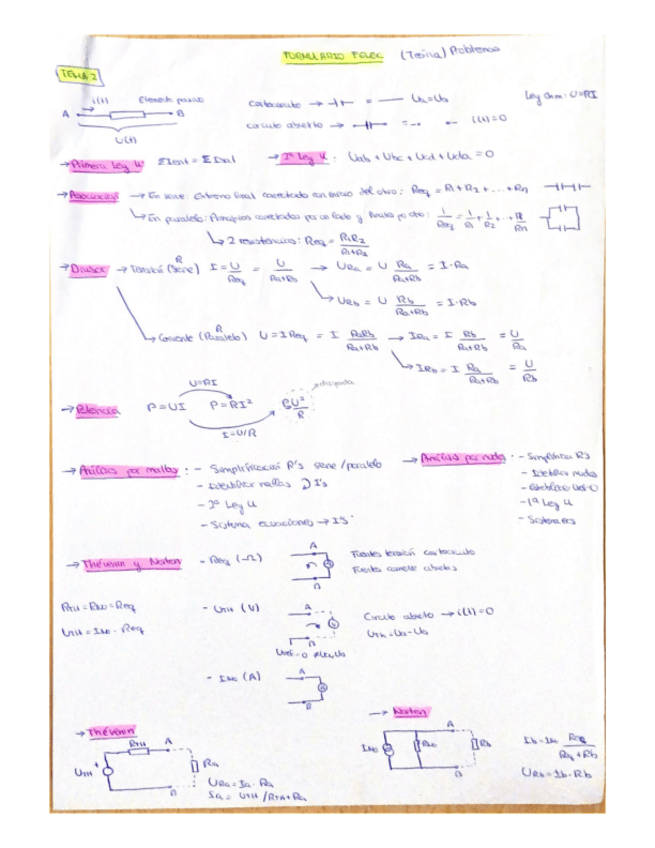 FORMULARIO FELEC (Teoría) Problemas
TEMA 2
i(t) Elemento pasivo
A B
U(t)
Cortocircuito → = Ua=Ub
Ley Ohm: U=RI
circuito abierto → = i(t)=0
→ Primera Ley K: ΣIent = ΣIsal
→ 2ª Ley K: Uab + Ubc + Ucd + Uda = 0
→ Asociación → En serie: Extremo final conectado con inicio del otro: Req = R1 + R2 + ... + Rn
→ En paralelo: Principios conectados por un lado y finales por otro: 1/Req = 1/R1 + 1/R2 + ... + 1/Rn
→ 2 resistencias: Req = R1R2/(R1+R2)
→ Divisor → Tensión (Serie) R I = U/Req = U/(Ra+Rb) → URa = U Ra/(Ra+Rb) = I·Ra
→ URb = U Rb/(Ra+Rb) = I·Rb
→ Corriente (Paralelo) R U = I Req = I RaRb/(Ra+Rb) → IRa = I Rb/(Ra+Rb) = U/Ra
→ IRb = I Ra/(Ra+Rb) = U/Rb
U=RI
→ Potencia P=UI P=RI² U²/R → disipada
I=U/R
→ Análisis por mallas: - Simplificación R's serie/paralelo
- Identificar mallas I's
- 2ª Ley K
- Sistema ecuaciones → I's
→ Análisis por nudos: - Simplificar R's
- Identificar nudos
- Uref=0
- 1ª Ley K
- Sistema
→ Thévenin y Norton - Req (Ω) A B Fuentes tensión cortocircuito
Fuentes corriente abiertas
RTH = RNO = Req
UTH = INO · Req
- UTH (V) A B Circuito abierto → i(t)=0
UTH = Ua-Ub
Uref=0
- INO (A) A B
→ Thévenin
RTH A
UTH Ra
B
URa = Ia · Ra
Ia = UTH/RTH+Ra
→ Norton
A
INO RNO Rb
B
Ib = INO Req/(Req+Rb)
URb = Ib·Rb